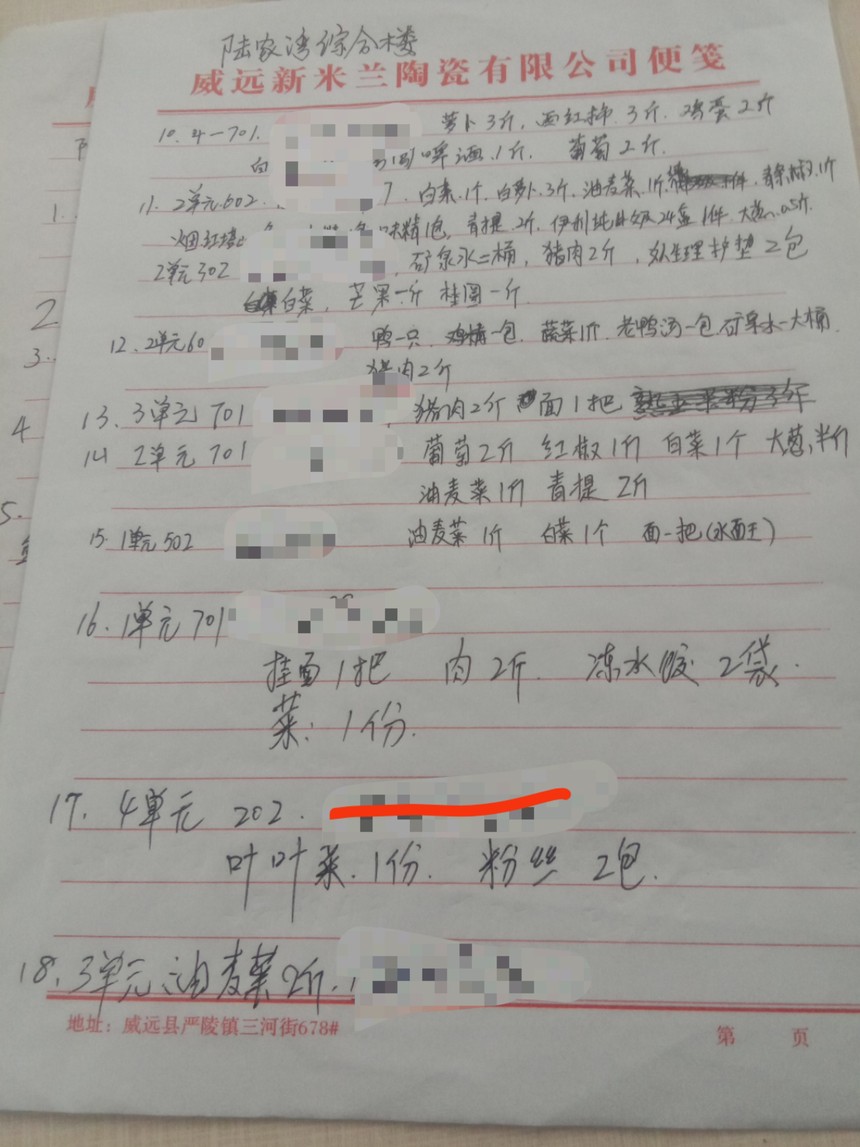 陆家湾综合楼
威远新米兰陶瓷有限公司便笺
10. 4—701. 萝卜3斤, 西红柿 3斤. 鸡蛋2斤
白 啤酒.1斤. 葡萄2斤.
11. 2单元.602. 7. 白菜.1个. 白萝卜.3斤. 油麦菜.1斤 青椒.1斤
烟红塔 味精1包, 青提.2斤. 伊利纯牛奶24盒1件. 大葱.0.5斤.
2单元302 矿泉水二桶, 猪肉2斤, 女生理护垫2包
白菜, 芒果一斤 桂圆一斤
12. 2单元60 鸭一只. 鸡精一包. 蔬菜1斤. 老鸭汤一包. 矿泉水一大桶.
猪肉2斤
13. 3单元 701 猪肉2斤 面1把
14 2单元 701 葡萄2斤 红椒1斤 白菜1个 大葱半斤
油麦菜1斤 青提2斤
15. 1单元502 油麦菜1斤 白菜1个 面一把(水面王)
16. 1单元 701
挂面1把 肉2斤. 冻水饺2袋.
菜: 1份.
17. 4单元 202.
叶叶菜.1份. 粉丝2包.
18. 3单元.油麦菜2斤.
地址：威远县严陵镇三河街678#
第 页
1.
2
3.
4
5.